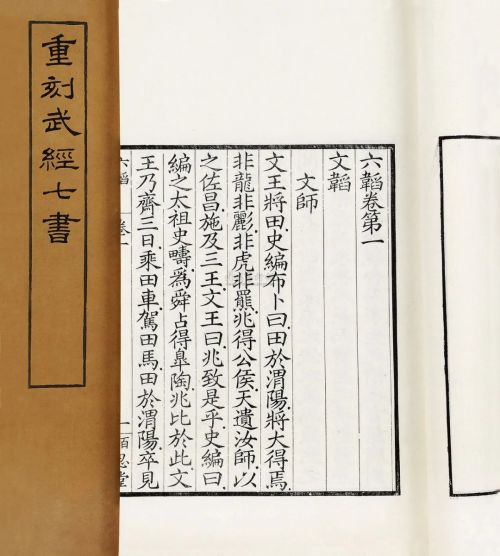 重刻武經七書
六韜卷第一
文韜
文師
文王將田史編布卜曰田於渭陽將大得焉
非龍非彲非虎非羆兆得公侯天遺汝師以
之佐昌施及三王文王曰兆致是乎史編曰
編之太祖史疇為舜占得皋陶兆比於此文
王乃齊三日乘田車駕田馬田於渭陽卒見
六韜 卷一 一 百忍堂